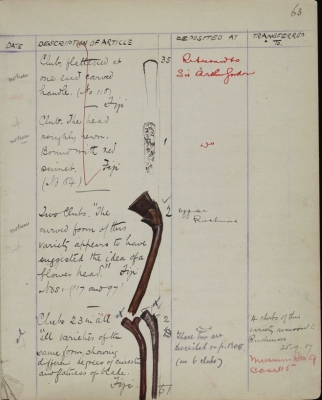 63
DATE
DESCRIPTION OF ARTICLE
DEPOSITED AT
TRANSFERRED TO
Club, flattened at
one end carved
handle. (No 118)
Fiji
35
Returned to
Sir Arthur Gordon
Club. The head
roughly hewn.
Bound with red
sinnet. Fiji
(No 64)
1
do
Two Clubs. "The
curved form of this
variety appears to have
suggested the idea of a
flower head." Fiji
Nos. (117 and 97)
2
upper
Clubs 23 in all
all varieties of the
same form showing
different degrees of
and of blade.
Fiji
2
These two are
described on p.
(in 6 clubs)
4 clubs of this
variety removed to
25.9.07